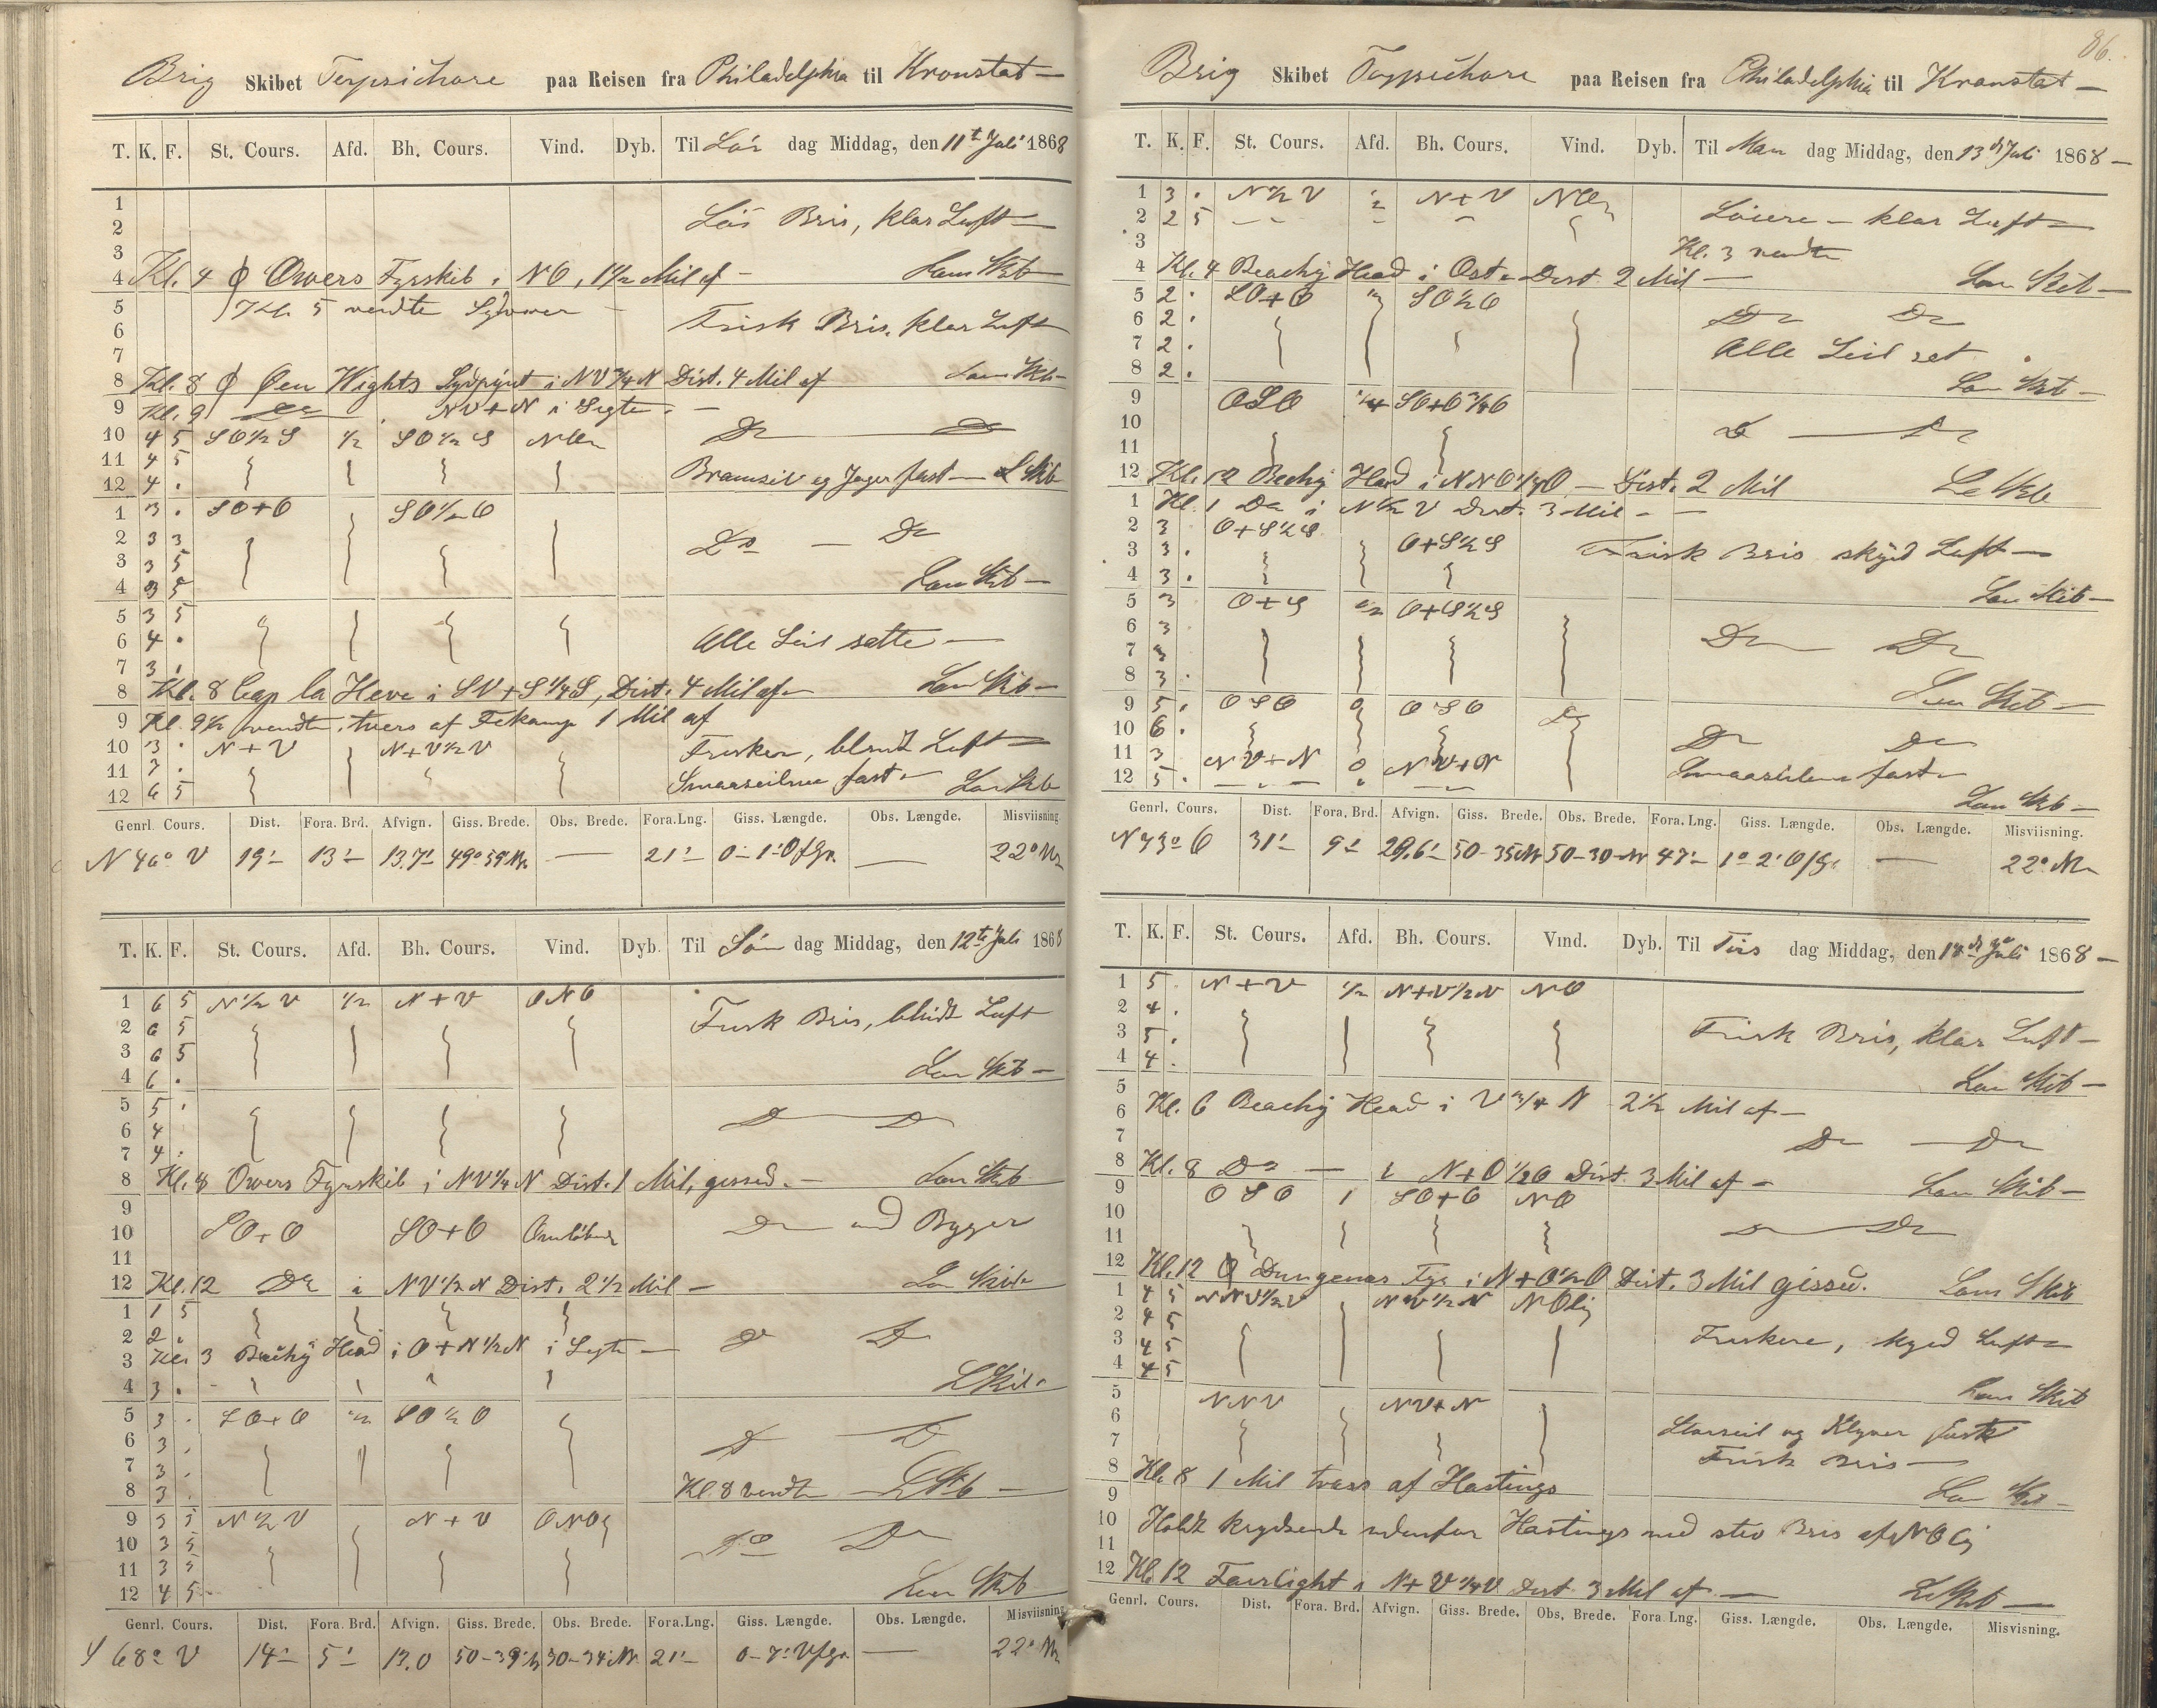 Brig Skibet Terpsichore paa Reisen fra Philadelphia til Kronstat —
T. K. F. St. Cours. Afd. Bh. Cours. Vind. Dyb. Til Lör dag Middag, den 11te Juli 1868
1
2 Lös Bris, klar Luft —
3
4 Kl. 4 Φ Owers Fyrskib i NO, 1½ Mil af — Lens Skib —
5 Kl. 5 vendte —
6 Frisk Bris, klar Luft
7
8 Kl. 8 Φ Öen Wights Sydpynt i NV¾N Dist. 4 Mil af Lens Skib —
9 Kl. 9 Do NV+N i Sigte. —
10 4 5 SO½S ½ SO½S NOn Do Do
11 4 5
12 4 . Bramseil og Jager fast — L Skib
1 3 . SO+O SO½O
2 3 3 Do — Do
3 3 5
4 3 5 Lens Skib —
5 3 5
6 4 . Alle Seil satte —
7 3 .
8 Kl. 8 Cap la Heve i SV+S¼S, Dist. 4 Mil af — Lens Skib —
9 Kl. 9½ vendte, tvers af Fekamp 1 Mil af
10 3 . N+V N+V½V Friskere, blandt Luft —
11 7 .
12 6 5 Smaaseilene fast — Len Skib
Genrl. Cours. Dist. Fora. Brd. Afvign. Giss. Brede. Obs. Brede. Fora. Lng. Giss. Længde. Obs. Længde. Misviisning
N 46° V 19' 13' 13.7' 49° 59' N. — 21' 0-1' O f Gr. — 22° N
T. K. F. St. Cours. Afd. Bh. Cours. Vind. Dyb. Til Sön dag Middag, den 12te Juli 1868
1 6 5 N½V ½ N+V ONO
2 6 5 Frisk Bris, blandt Luft
3 6 5
4 6 . Len Skib —
5 5 .
6 4 Do Do
7 4 .
8 Kl. 8 Owers Fyrskib i NV¼N Dist. 1 Mil, gissed. — Lens Skib
9
10 SO+O SO+O Omlöbende Do med Byger
11
12 Kl. 12 Do i NV½N Dist. 2½ Mil — Len Skib
1 1 5
2 2 . Do Do
3 Kl. 3 Beachy Head i O+N½N i Sigte —
4 3 . L Skib
5 3 . SO+O ½ SO½O
6 3 . Do Do
7 3 .
8 3 . Kl. 8 vendte — L Skb —
9 3 5 N½V N+V ONO
10 3 5 Do Do
11 3 5
12 4 5 Len Skib
Genrl. Cours. Dist. Fora. Brd. Afvign. Giss. Brede. Obs. Brede. Fora. Lng. Giss. Længde. Obs. Længde. Misviisning
S 68° V 14' 5' 13.0 50-39' N 50-34' N. 21' 0-7' V f Gr. — 22° N
86.
Brig Skibet Terpsichore paa Reisen fra Philadelphia til Kronstat —
T. K. F. St. Cours. Afd. Bh. Cours. Vind. Dyb. Til Man dag Middag, den 13de Juli 1868 —
1 3 . N½V ½ N+V NOn
2 2 5 Löiere — klar Luft —
3 Kl. 3 vendte
4 Kl. 4 Beachy Head i Ost — Dist 2 Mil — Len Skib —
5 2 . SO+O ½ SO½O
6 2 . Do Do
7 2 . Alle Seil sat
8 2 . Len Skib —
9 OSO ¼ SO+O¾O
10 Do — Do
11
12 Kl. 12 Beachy Head i NNO¼O — Dist. 2 Mil Len Skb
1 Kl. 1 Do i N½V Dist. 3 Mil — —
2 3 O+S½S
3 3 . O+S½S Frisk Bris skyed Luft —
4 3 . Len Skib —
5 3 O+S ½ O+S½S
6 3 Do Do
7 3
8 3 . Len Skib —
9 5 . OSO 0 OSO Do
10 6 . Do Do
11 3 NV+N 0 NV+N
12 5 . Smaaseilene fast — Len Skb —
Genrl. Cours. Dist. Fora. Brd. Afvign. Giss. Brede. Obs. Brede. Fora. Lng. Giss. Længde. Obs. Længde. Misviisning.
N 73° O 31' 9' 29.6' 50-35 N 50-30 N 47' 1° 2' O f Gr — 22° N
T. K. F. St. Cours. Afd. Bh. Cours. Vind. Dyb. Til Tirs dag Middag, den 14de Juli 1868 —
1 5 . N+V ½ N+V½N NO
2 4 .
3 5 . Frisk Bris, klar Luft —
4 4 . Len Skib —
5
6 Kl. 6 Beachy Head i V¾N 2½ Mil af —
7 Do — Do
8 Kl. 8 Do — i N+O½O Dist. 3 Mil af — Len Skib —
9 OSO 1 SO+O NO
10
11 Do Do
12 Kl. 12 Φ Dungenes Fyr i N+O½O Dist. 3 Mil gissed. Lens Skib
1 4 5 NNV½V NV½N NOlig
2 4 5
3 4 5 Friskere, skyed Luft —
4 4 5 Len Skib
5 NNV NV+N
6 Storseil og Klyver fast
7 Frisk Bris —
8 Kl. 8 1 Mil tvers af Hastings Len Skib —
9
10 Holdt krydsende udenfor Hastings med stiv Bris af NOlig
11
12 Kl. 12 Fairlight i N+V¼V Dist 3 Mil af — Len Skib —
Genrl. Cours. Dist. Fora. Brd. Afvign. Giss. Brede. Obs. Brede. Fora. Lng. Giss. Længde. Obs. Længde. Misvisning.